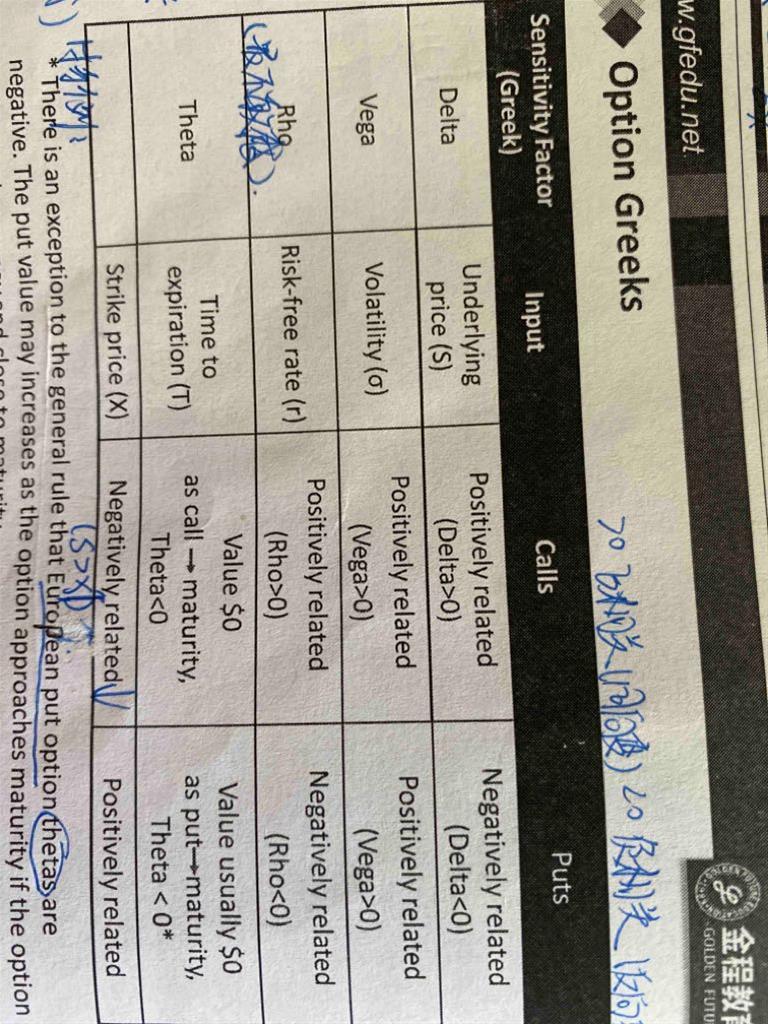 w.gfedu.net
金程教育
GOLDEN FUTU
Option Greeks
>0 正相关(同向变) <0 反相关
Sensitivity Factor (Greek)
Input
Calls
Puts
Delta
Underlying price (S)
Positively related (Delta>0)
Negatively related (Delta<0)
Vega
Volatility (σ)
Positively related (Vega>0)
Positively related (Vega>0)
Rho
(最不敏感).
Risk-free rate (r)
Positively related (Rho>0)
Negatively related (Rho<0)
Theta
Time to expiration (T)
Value $0 as call → maturity, Theta<0
Value usually $0 as put→maturity, Theta < 0*
Strike price (X)
Negatively related ↓
(S>X)
Positively related
特例:
* There is an exception to the general rule that European put option thetas are
negative. The put value may increases as the option approaches maturity if the option
and close to maturity